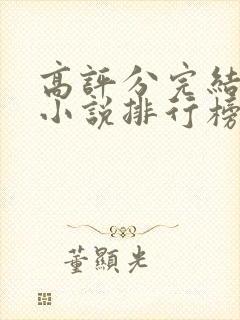 高評分完結
小說排行榜
董顯光